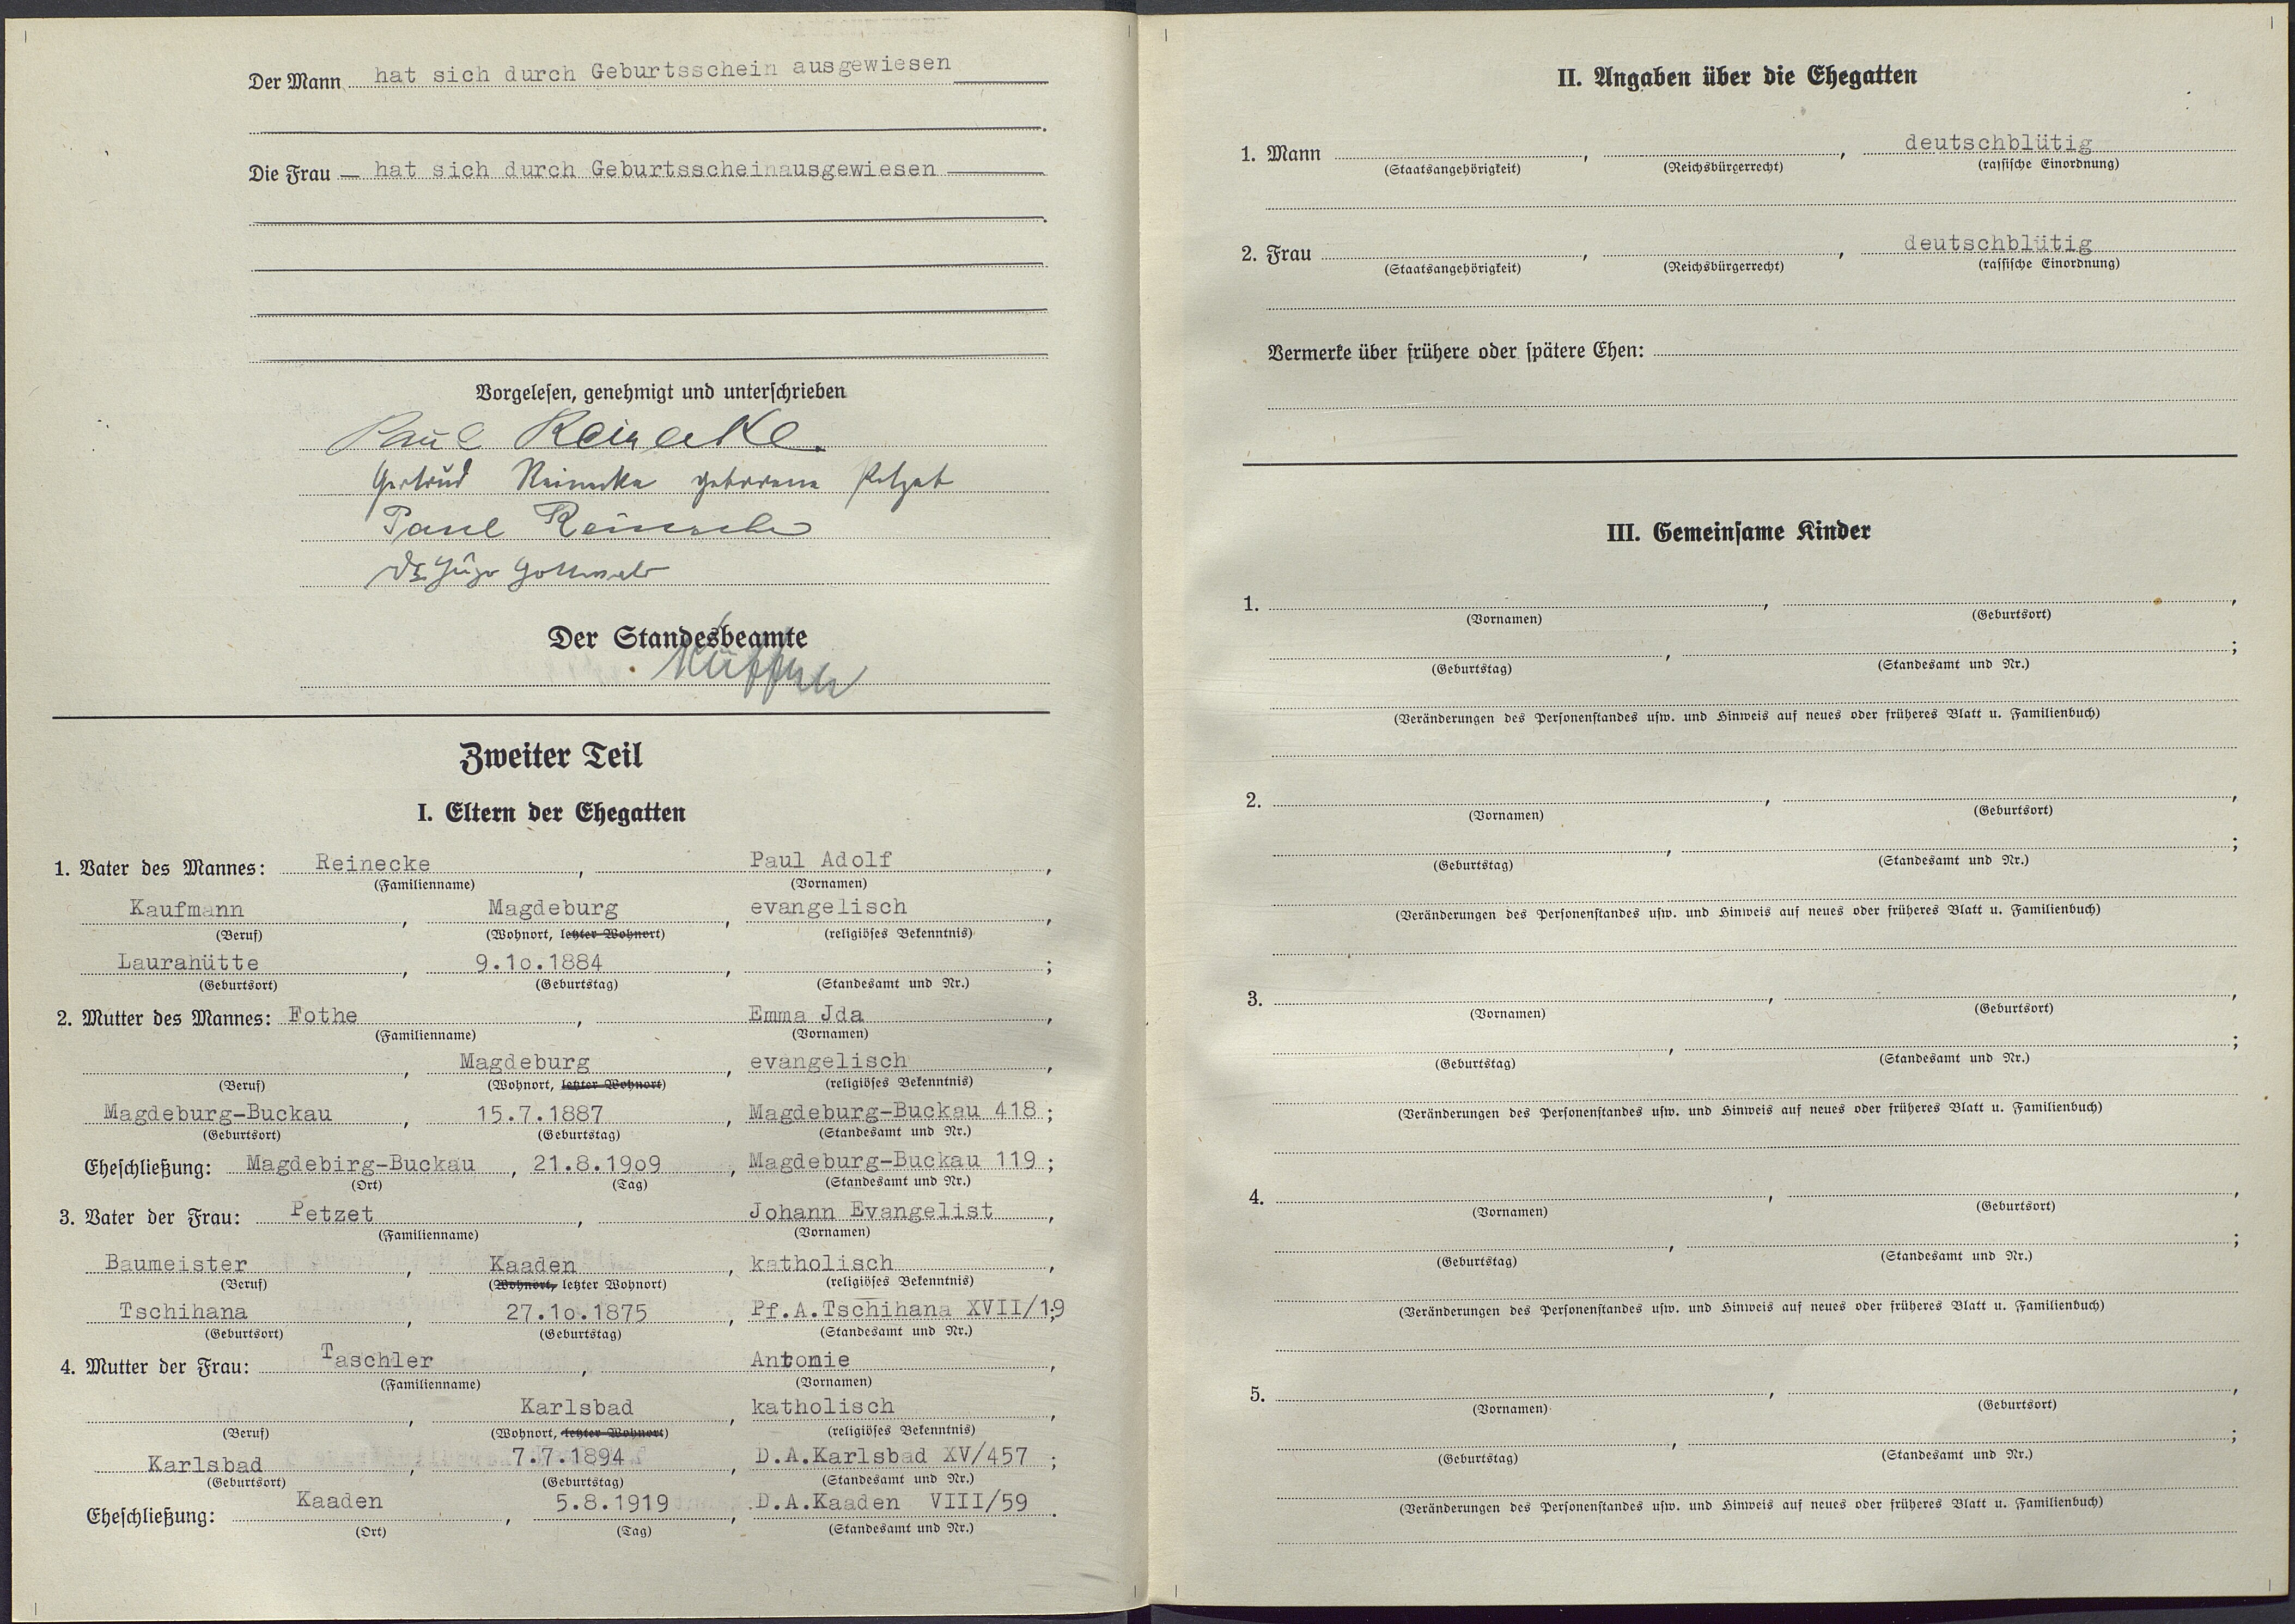 Der Mann hat sich durch Geburtsschein ausgewiesen
Die Frau — hat sich durch Geburtsscheinausgewiesen
Vorgelesen, genehmigt und unterschrieben
Paul Reinecke.
Gertrud Reinecke geborene Petzet
Paul Reinecke
Dr. Hugo Gottwald
Der Standesbeamte
Zweiter Teil
I. Eltern der Ehegatten
1. Vater des Mannes: Reinecke, Paul Adolf,
(Familienname) (Vornamen)
Kaufmann, Magdeburg, evangelisch,
(Beruf) (Wohnort, letzter Wohnort) (religiöses Bekenntnis)
Laurahütte, 9.10.1884, ;
(Geburtsort) (Geburtstag) (Standesamt und Nr.)
2. Mutter des Mannes: Fothe, Emma Jda,
(Familienname) (Vornamen)
, Magdeburg, evangelisch,
(Beruf) (Wohnort, letzter Wohnort) (religiöses Bekenntnis)
Magdeburg-Buckau, 15.7.1887, Magdeburg-Buckau 418;
(Geburtsort) (Geburtstag) (Standesamt und Nr.)
Eheschließung: Magdebirg-Buckau, 21.8.1909, Magdeburg-Buckau 119;
(Ort) (Tag) (Standesamt und Nr.)
3. Vater der Frau: Petzet, Johann Evangelist,
(Familienname) (Vornamen)
Baumeister, Kaaden, katholisch,
(Beruf) (Wohnort, letzter Wohnort) (religiöses Bekenntnis)
Tschihana, 27.10.1875, Pf.A.Tschihana XVII/19;
(Geburtsort) (Geburtstag) (Standesamt und Nr.)
4. Mutter der Frau: Taschler, Antonie,
(Familienname) (Vornamen)
, Karlsbad, katholisch,
(Beruf) (Wohnort, letzter Wohnort) (religiöses Bekenntnis)
Karlsbad, 7.7.1894, D.A.Karlsbad XV/457;
(Geburtsort) (Geburtstag) (Standesamt und Nr.)
Eheschließung: Kaaden, 5.8.1919, D.A.Kaaden VIII/59.
(Ort) (Tag) (Standesamt und Nr.)
II. Angaben über die Ehegatten
1. Mann , , deutschblütig
(Staatsangehörigkeit) (Reichsbürgerrecht) (rassische Einordnung)
2. Frau , , deutschblütig
(Staatsangehörigkeit) (Reichsbürgerrecht) (rassische Einordnung)
Vermerke über frühere oder spätere Ehen:
III. Gemeinsame Kinder
1. , ,
(Vornamen) (Geburtsort)
, ;
(Geburtstag) (Standesamt und Nr.)
(Veränderungen des Personenstandes usw. und Hinweis auf neues oder früheres Blatt u. Familienbuch)
2. , ,
(Vornamen) (Geburtsort)
, ;
(Geburtstag) (Standesamt und Nr.)
(Veränderungen des Personenstandes usw. und Hinweis auf neues oder früheres Blatt u. Familienbuch)
3. , ,
(Vornamen) (Geburtsort)
, ;
(Geburtstag) (Standesamt und Nr.)
(Veränderungen des Personenstandes usw. und Hinweis auf neues oder früheres Blatt u. Familienbuch)
4. , ,
(Vornamen) (Geburtsort)
, ;
(Geburtstag) (Standesamt und Nr.)
(Veränderungen des Personenstandes usw. und Hinweis auf neues oder früheres Blatt u. Familienbuch)
5. , ,
(Vornamen) (Geburtsort)
, ;
(Geburtstag) (Standesamt und Nr.)
(Veränderungen des Personenstandes usw. und Hinweis auf neues oder früheres Blatt u. Familienbuch)